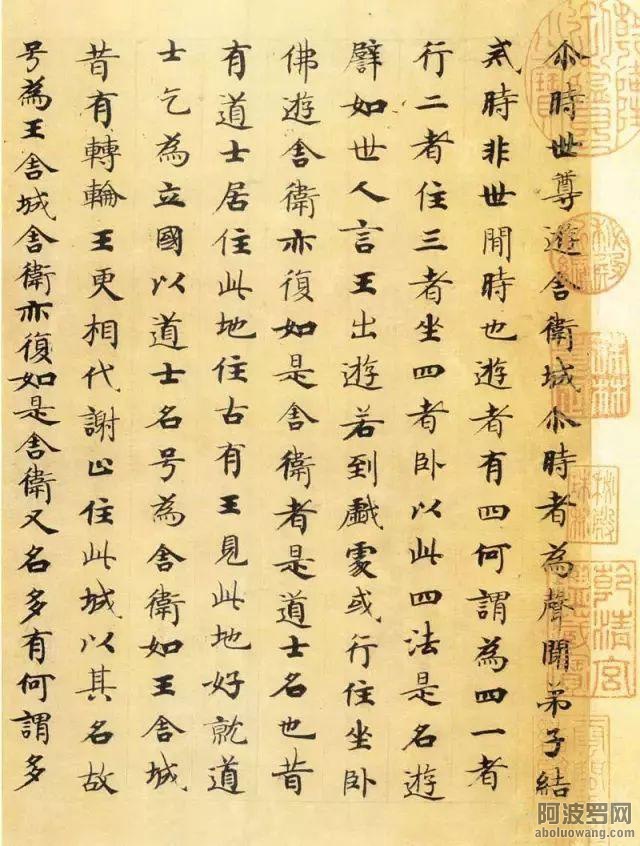 尒時世尊遊舍衛城尒時者為聲聞弟子結
戒時非世間時也遊者有四何謂為四一者
行二者住三者坐四者卧以此四法是名遊
譬如世人言王出遊若到戲處或行住坐卧
佛遊舍衛亦復如是舍衛者是道士名也昔
有道士居住此地住古有王見此地好就道
士乞為立國以道士名号為舍衛如王舍城
昔有轉輪王更相代謝止住此城以其名故
号為王舍城舍衛亦復如是舍衛又名多有何謂多
乾清宮
阿波罗网
aboluowang.com